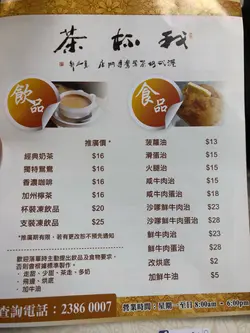 茶杯我
飲品
食品
推廣價*
經典奶茶 $16
獨特鴛鴦 $16
香濃咖啡 $16
加州檸茶 $16
杯裝凍飲品 $20
支裝凍飲品 $25
*推廣期有限，若有更改恕不預先通知
歡迎落單時主動提出飲品及食物要求，
否則會根據標準製作。
- 走甜、少甜、茶走、多奶
- 飛邊、烘底
- 加牛油
菠蘿油 $13
滑蛋治 $15
火腿治 $15
咸牛肉治 $15
咸牛肉蛋治 $18
沙嗲鮮牛肉治 $23
沙嗲鮮牛肉蛋治 $28
鮮牛肉治 $23
鮮牛肉蛋治 $28
改烘底 $2
加鮮牛油 $5
查詢電話：2386 0007
營業時間：星期一至日 8:00am - 6:00pm